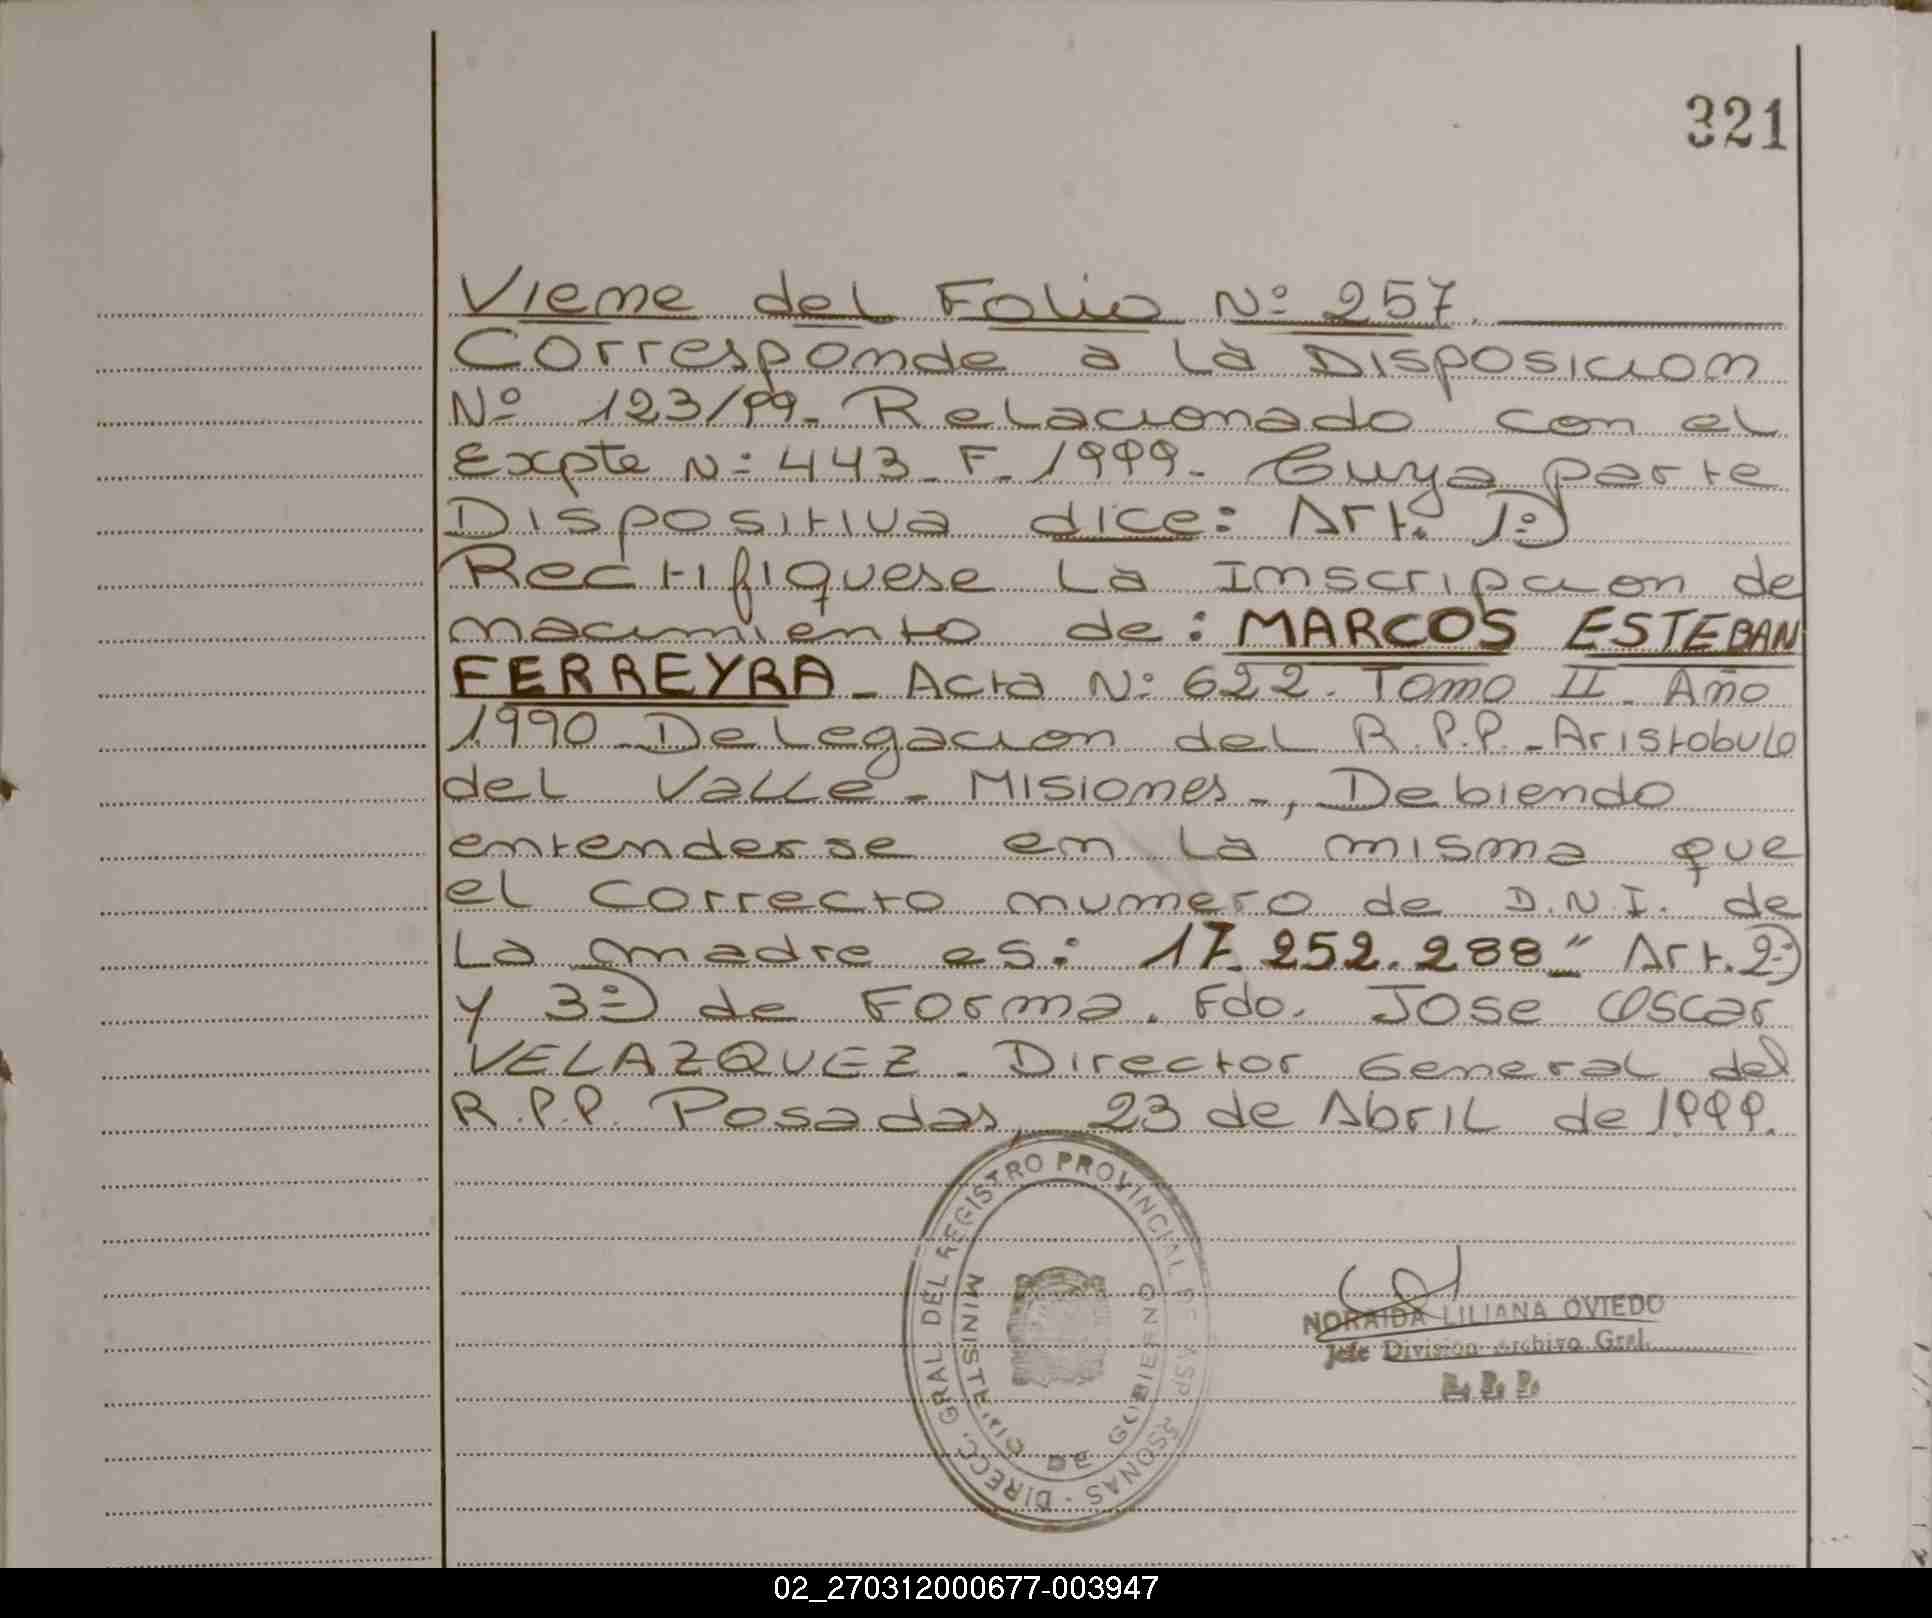 321
Viene del Folio Nº 257.
Corresponde a la Disposicion
Nº 123/99- Relacionado con el
Expte Nº 443_F_1999- Cuya parte
Dispositiva dice: Art. 1º)
Rectifiquese la Inscripcion de
nacimiento de: MARCOS ESTEBAN
FERREYRA - Acta Nº 622. Tomo II_ Año
1990_ Delegacion del R.P.P.-Aristobulo
del Valle - Misiones-, Debiendo
entenderse en la misma que
el correcto numero de D.N.I. de
la madre es: 17.252.288_" Art. 2º)
y 3º) de Forma. Fdo. Jose Oscar
VELAZQUEZ. Director General del
R.P.P. Posadas, 23 de Abril de 1999.
DIRECC. GRAL. DEL REGISTRO PROVINCIAL DE LAS PERSONAS -
MINISTERIO DE GOBIERNO
NORAIDA LILIANA OVIEDO
Jefe División Archivo Gral.
R. P. P.
02_270312000677-003947